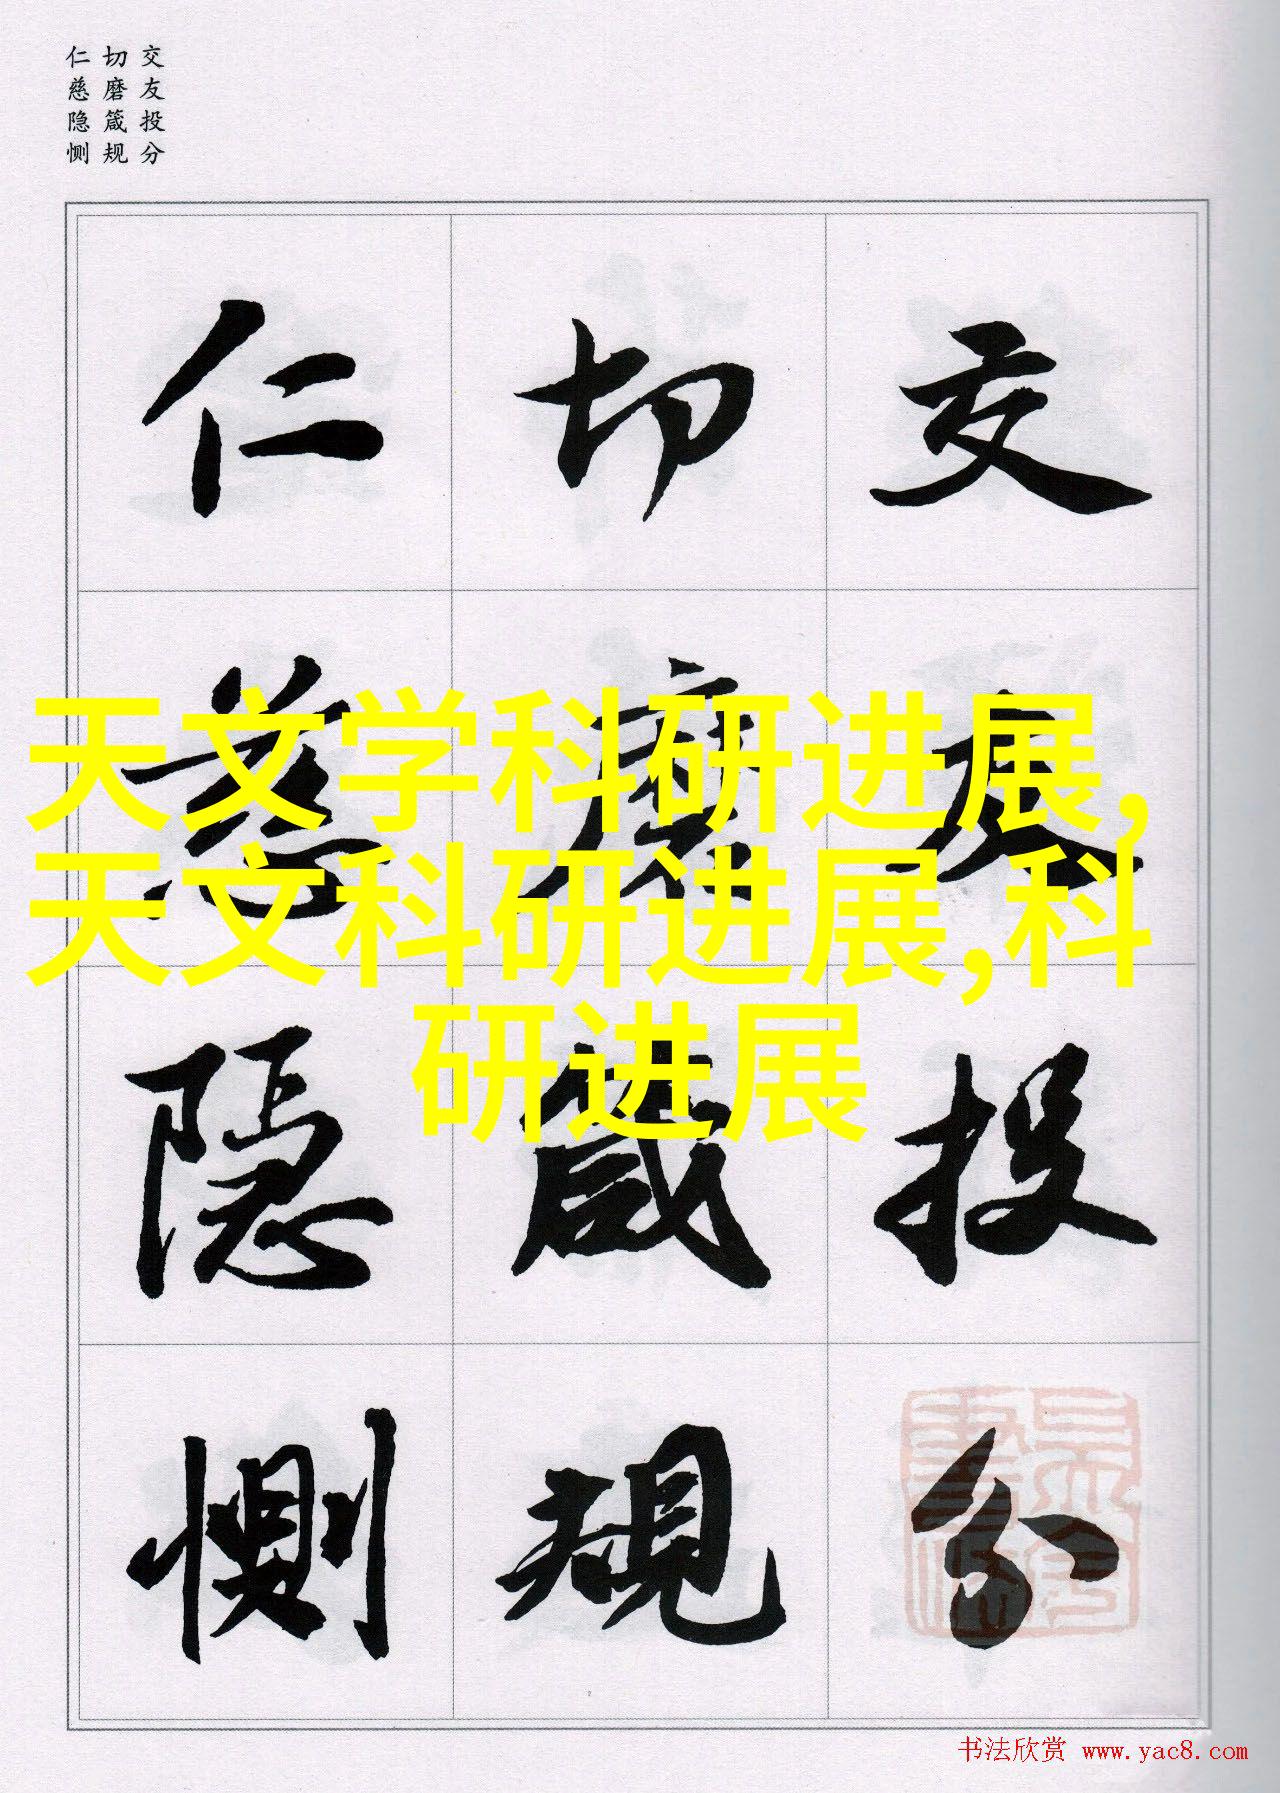 交友投分
切磨箴规
仁慈隐恻
天文学科研进展,
天文科研进展,科
研进展
交友投分
切磨箴規
仁慈隱惻
书法欣赏 www.yac8.com